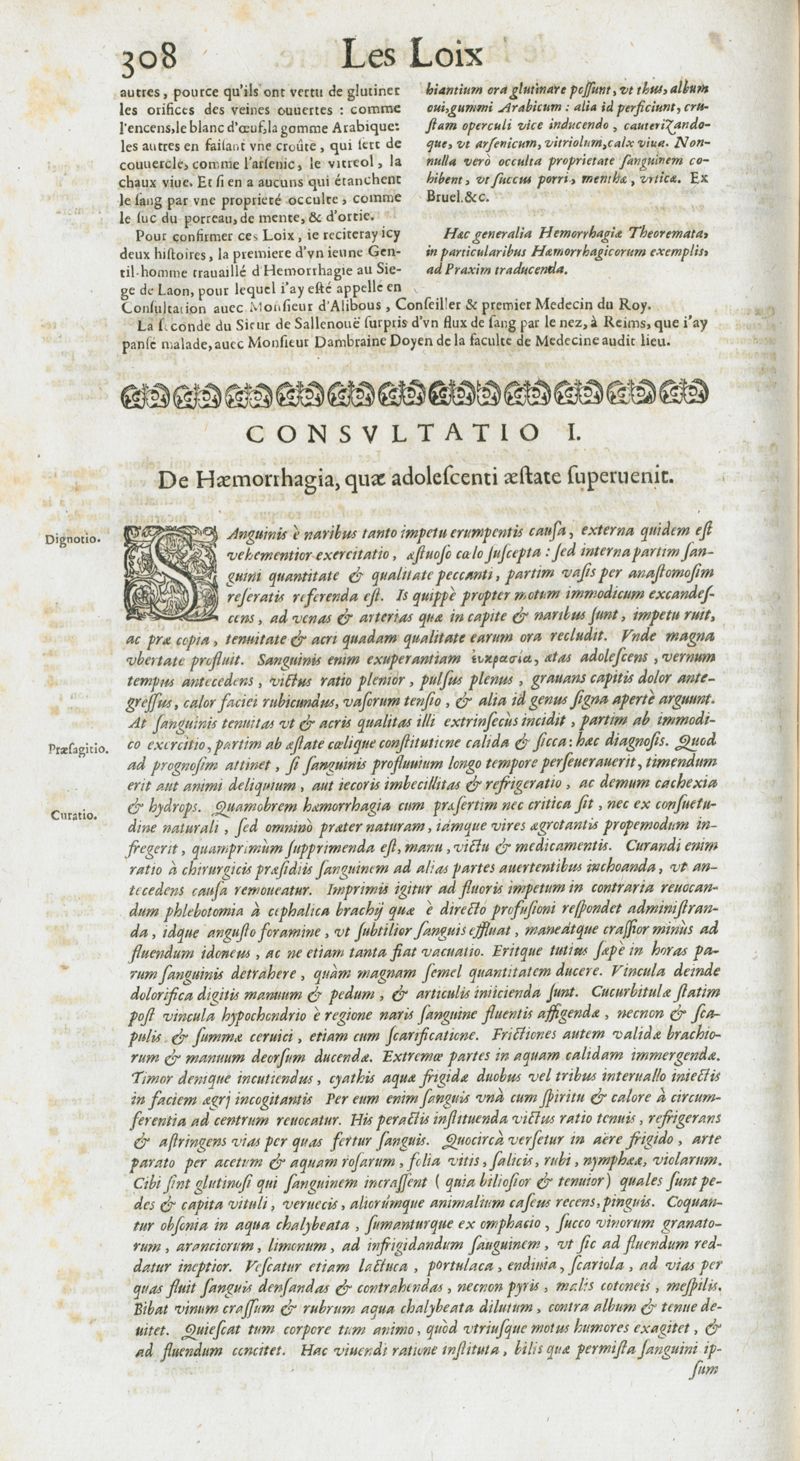 308 Les Loix
autres, pource qu'ils ont vertu de glutiner
les orifices des veines ouuertes : comme
l'encens, le blanc d'œuf, la gomme Arabique:
les autres en faisant vne croûte, qui sert de
couuercle, comme l'arsenic, le vitreol, la
chaux viue. Et si en a aucuns qui étanchent
le sang par vne proprieté occulte, comme
le suc du porreau, de mente, & d'ortie.
Pour confirmer ces Loix, ie reciteray icy
deux histoires, la premiere d'vn ieune Gen-
til-homme trauaillé d'Hemorrhagie au Sie-
ge de Laon, pour lequel i'ay esté appellé en
Consultation auec Monsieur d'Alibous, Conseiller & premier Medecin du Roy.
La seconde du Sieur de Sallenouë surpris d'vn flux de sang par le nez, à Reims, que i'ay
pansé malade, auec Monsieur Dambraine Doyen de la faculté de Medecine audit lieu.
hiantium ora glutinare possunt, vt thus, album
oui, gummi Arabicum : alia id perficiunt, cru-
stam operculi vice inducendo, cauterizando-
que, vt arsenicum, vitriolum, calx viua. Non-
nulla verò occulta proprietate sanguinem co-
hibent, vt succus porri, mentha, vrtica. Ex
Bruel. &c.
Hæc generalia Hemorrhagiæ Theoremata,
in particularibus Hæmorrhagicorum exemplis,
ad Praxim traducenda.
CONSVLTATIO I.
De Hæmorrhagia, quæ adolescenti æstate superuenit.
Dignotio.
SAnguinis è naribus tanto impetu erumpentis causa, externa quidem est
vehementior exercitatio, æstuoso cælo suscepta : sed interna partim san-
guini quantitate & qualitate peccanti, partim vasis per anastomosim
reseratis referenda est. Is quippè propter motum immodicum excandes-
cens, ad venas & arterias quæ in capite & naribus sunt, impetu ruit,
ac præ copia, tenuitate & acri quadam qualitate earum ora recludit. Vnde magna
vbertate profluit. Sanguinis enim exuperantiam ἐυκρασία, ætas adolescens, vernum
tempus antecedens, victus ratio plenior, pulsus plenus, grauans capitis dolor ante-
gressus, calor faciei rubicundus, vasorum tensio, & alia id genus signa apertè arguunt.
At sanguinis tenuitas vt & acris qualitas illi extrinsecùs incidit, partim ab immodi-
Præsagitio.
co exercitio, partim ab æstate cælique constitutione calida & sicca: hæc diagnosis. Quod
ad prognosim attinet, si sanguinis profluuium longo tempore perseuerauerit, timendum
erit aut animi deliquium, aut iecoris imbecillitas & refrigeratio, ac demum cachexia
Curatio.
& hydrops. Quamobrem hæmorrhagia cum præsertim nec critica sit, nec ex consuetu-
dine naturali, sed omninò præter naturam, iámque vires ægrotantis propemodum in-
fregerit, quamprimum supprimenda est, manu, victu & medicamentis. Curandi enim
ratio à chirurgicis præsidiis sanguinem ad alias partes auertentibus inchoanda, vt an-
tecedens causa remoueatur. Imprimis igitur ad fluoris impetum in contraria reuocan-
dum phlebotomia à cephalica brachij quæ è directo profusioni respondet administran-
da, idque angusto foramine, vt subtilior sanguis effluat, maneátque crassior minùs ad
fluendum idoneus, ac ne etiam tanta fiat vacuatio. Eritque tutius sæpè in horas pa-
rum sanguinis detrahere, quàm magnam semel quantitatem ducere. Vincula deinde
dolorifica digitis manuum & pedum, & articulis iniicienda sunt. Cucurbitulæ statim
post vincula hypochondrio è regione naris sanguine fluentis affigendæ, necnon & sca-
pulis & summæ ceruici, etiam cum scarificatione. Frictiones autem validæ brachio-
rum & manuum deorsum ducendæ. Extremæ partes in aquam calidam immergendæ.
Timor denique incutiendus, cyathis aquæ frigidæ duobus vel tribus interuallo iniectis
in faciem ægrj incogitantis Per eum enim sanguis vnà cum spiritu & calore à circum-
ferentia ad centrum reuocatur. His peractis instituenda victus ratio tenuis, refrigerans
& astringens vias per quas fertur sanguis. Quocircà versetur in aëre frigido, arte
parato per acetum & aquam rosarum, folia vitis, salicis, rubi, nymphææ, violarum.
Cibi sint glutinosi qui sanguinem incrassent ( quia biliosior & tenuior) quales sunt pe-
des & capita vituli, veruecis, aliorúmque animalium caseus recens, pinguis. Coquan-
tur obsonia in aqua chalybeata, sumanturque ex omphacio, succo vinorum granato-
rum, aranciorum, limonum, ad infrigidandum sanguinem, vt sic ad fluendum red-
datur ineptior. Vescatur etiam lactuca, portulaca, endiuia, scariola, ad vias per
quas fluit sanguis densandas & contrahendas, necnon pyris, malis cotoneis, mespilis.
Bibat vinum crassum & rubrum aqua chalybeata dilutum, contra album & tenue de-
uitet. Quiescat tum corpore tum animo, quòd vtriusque motus humores exagitet, &
ad fluendum concitet. Hac viuendi ratione instituta, bilis quæ permista sanguini ip-
sum